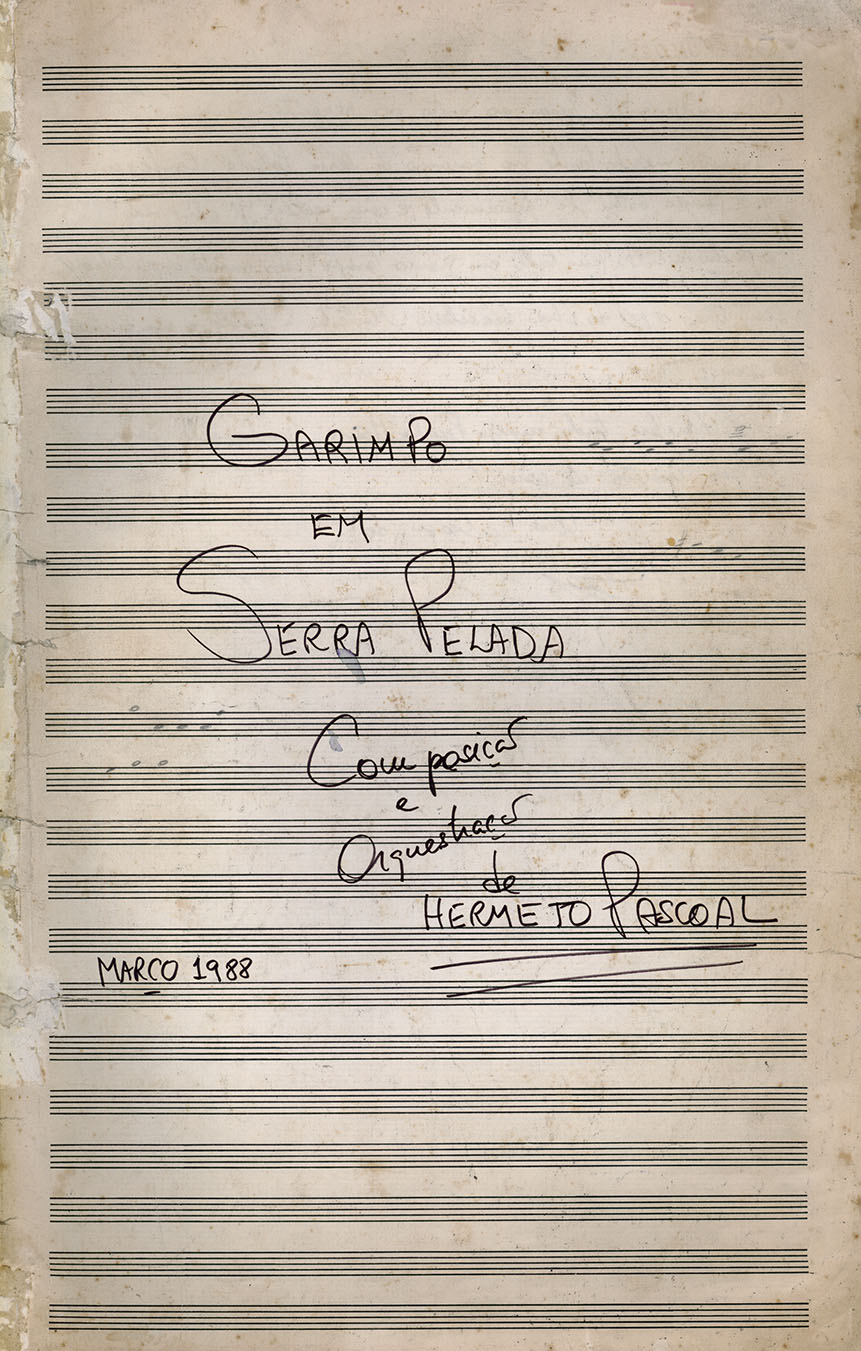 GARIMPO
EM
SERRA PELADA
Composição
e
Orquestração
de
HERMETO PASCOAL
MARÇO 1988